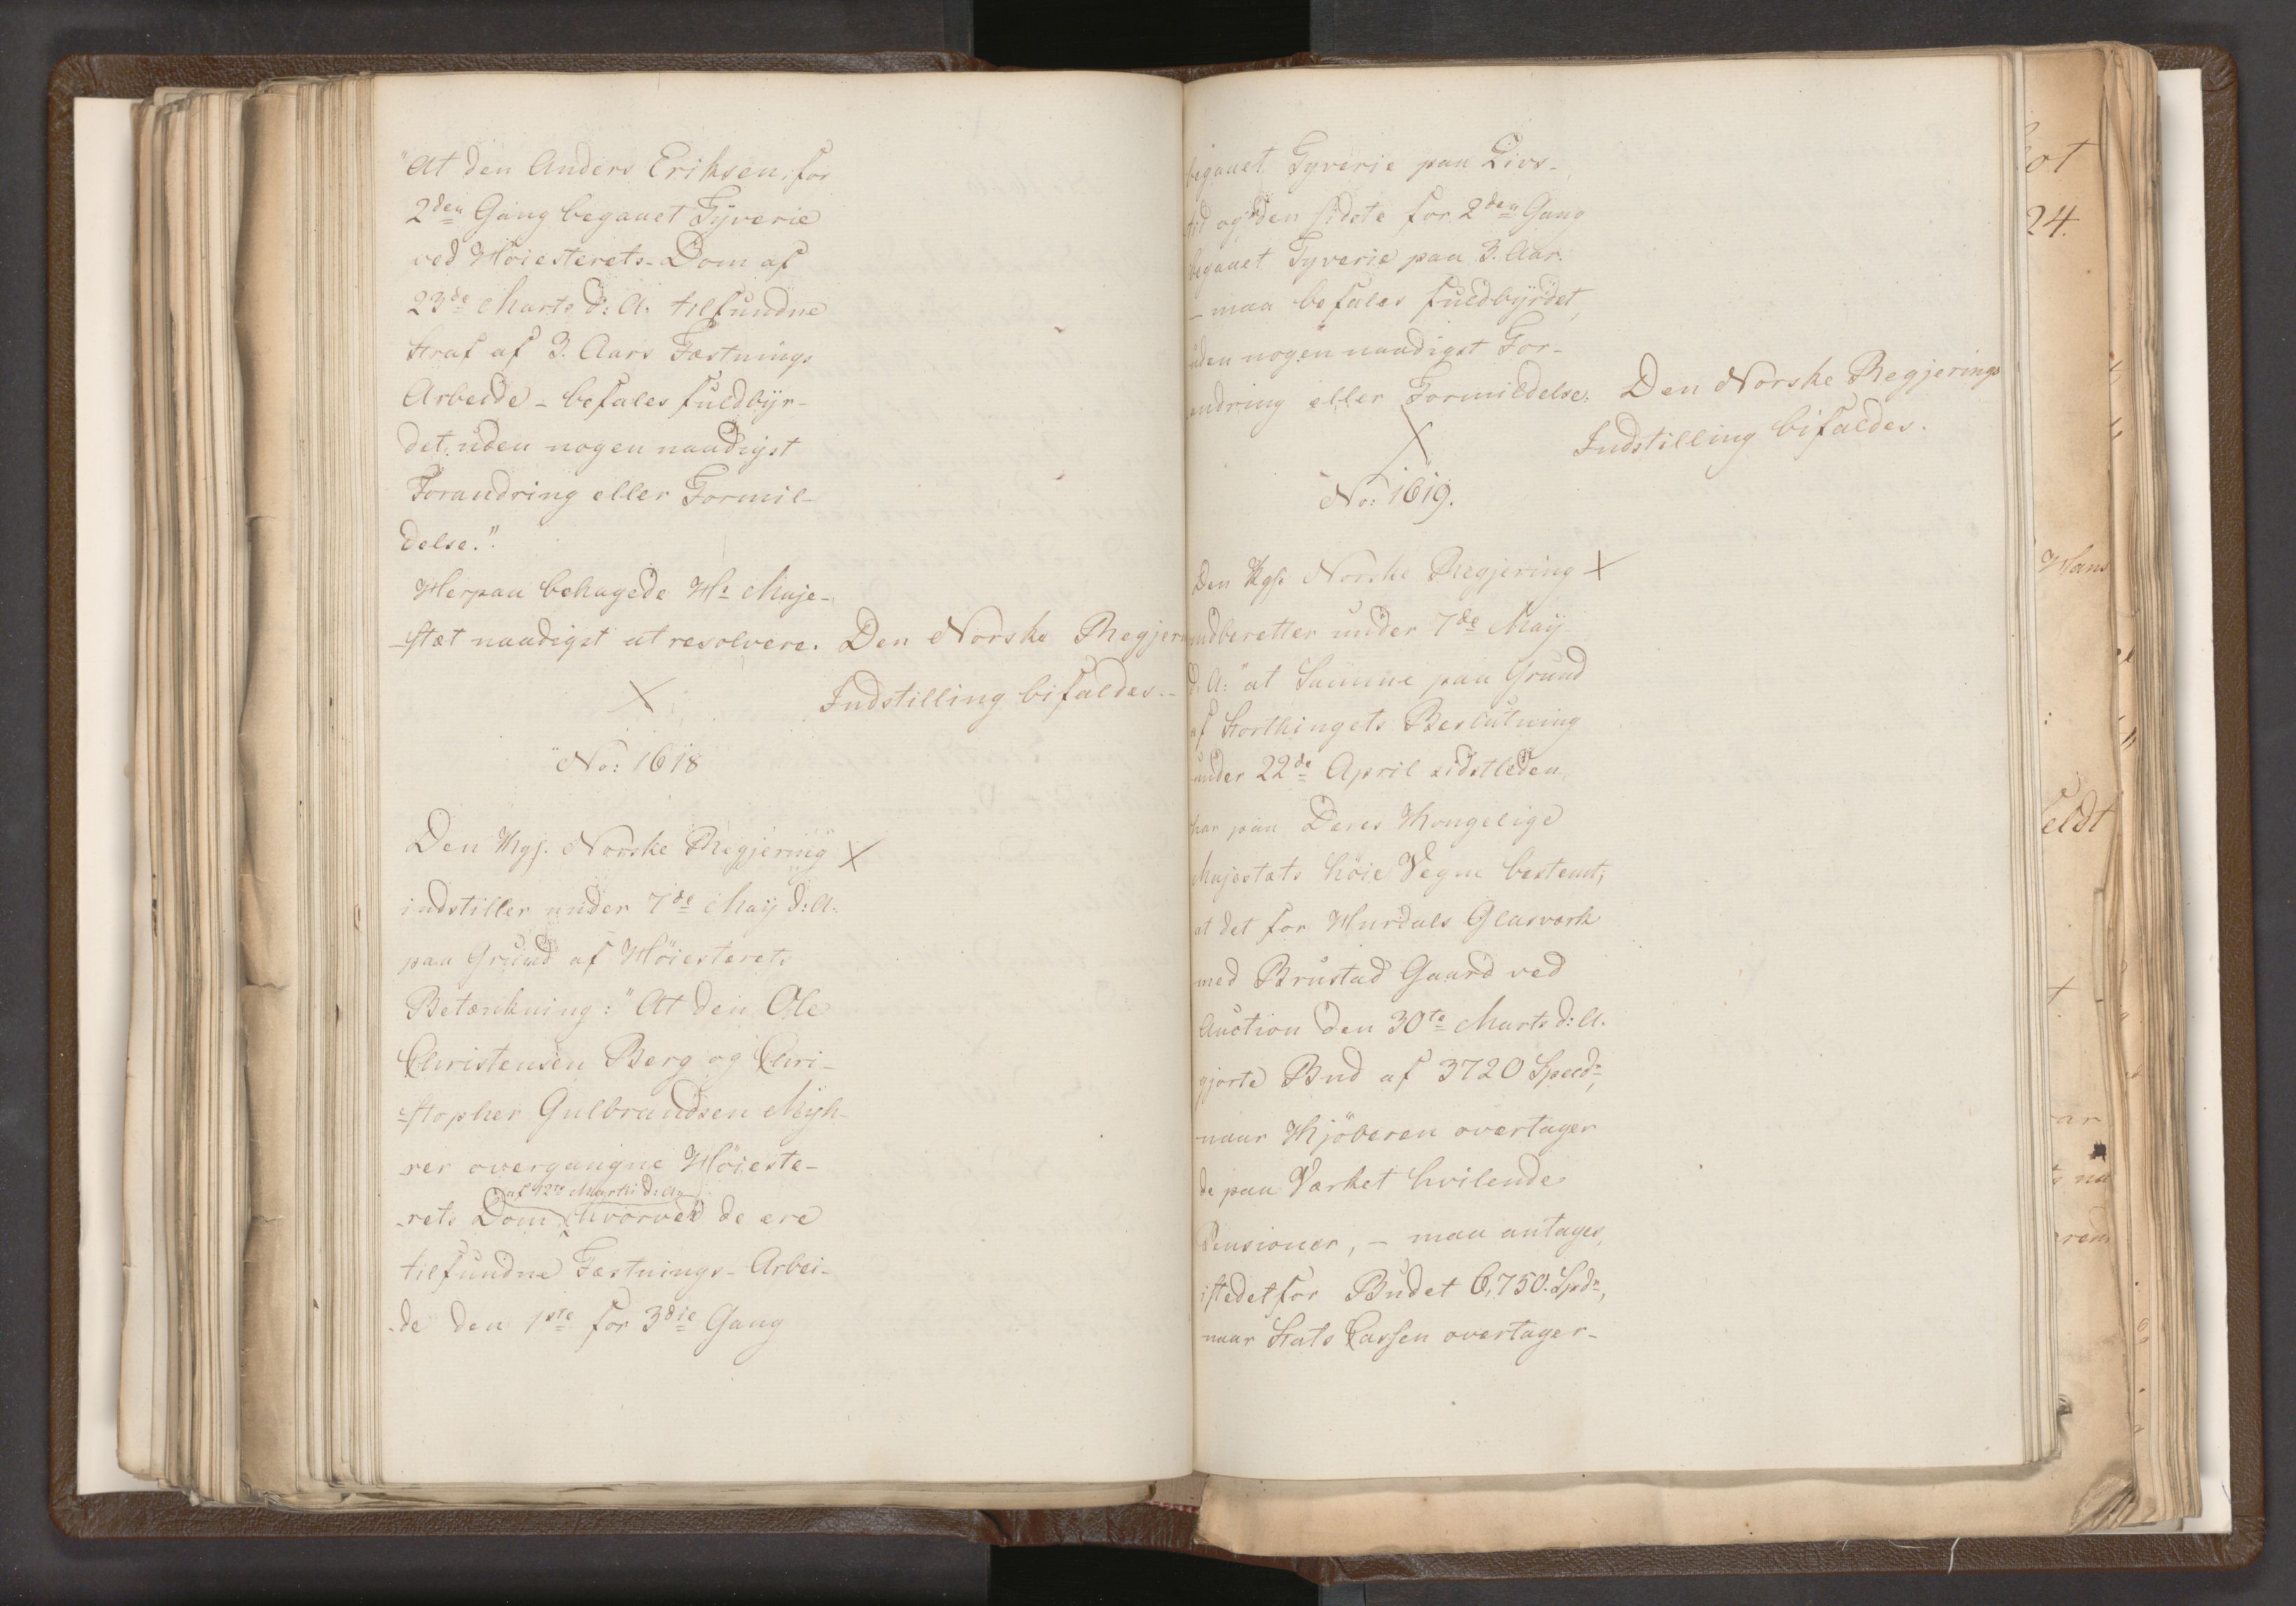 "At den Anders Eriksen, for
2den Gang begaaet Tyverie
ved Høiesterets-Dom af
23de Marts d: A. tilfundne
Straf af 3. Aars Fæstnings
Arbeide - befales fuldbyr-
det, uden nogen naadigst
Forandring eller Formil-
delse.".
Herpaa behagede Hs Maje-
-stæt naadigst at resolvere. Den Norske Regjer
Indstilling bifaldes.-
No: 1618
Den Kgl. Norske Regjering X
indstiller under 7de Maÿ d: A.
paa Grund af Höiesterets
Betænkning: "At den Ole
Christensen Berg og Chri-
-stopher Gulbrandsen Myh-
-rer overgangne Höieste-
af 12te Martii d: A.
-rets Dom, hvorved de ere
tilfundne Fæstnings-Arbei-
-de den 1ste for 3die Gang
begaaet Tyverie paa Livs-
tid og den sidste for 2den Gang
begaaet Tyverie paa 3. Aar.
- maa befales fuldbyrdet,
uden nogen naadigst For-
andring eller Formildelse: Den Norske Regjerings
Indstilling bifaldes.
No: 1619.
Den Kgl. Norske Regjering X
indberetter under 7de Maÿ
d: A: "at Samme paa Grund
af Storthingets Beslutning
under 22de April sidstleden,
har paa Deres Kongelige
Majestæts höie Vegne bestemt,
at det for Hurdals Glasværk
med Brustad Gaard ved
Auction den 30te Marts d: A.
gjorte Bud af 3720 Specdr,
naar Kjöberen overtager
de paa Værket hvilende
Pensioner, - maa antages,
istedetfor Budet 6,750. Spdr,
naar Stats Cassen overtager-
24.
Hans
feldt